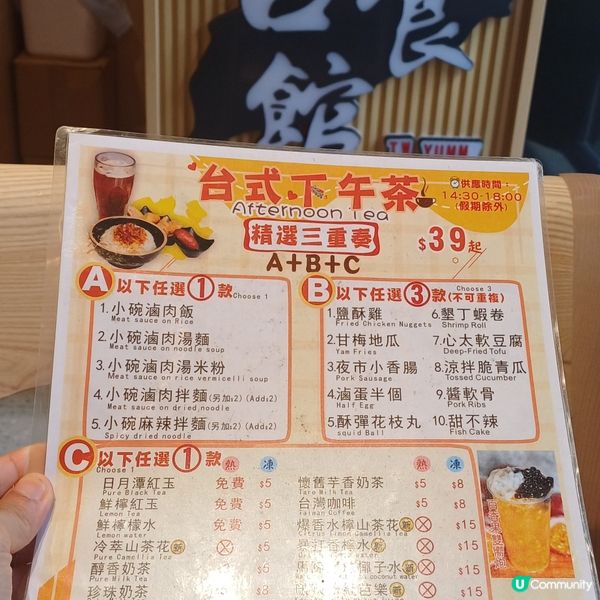 食
館
TW YUMM
台式下午茶
Afternoon Tea
供應時間：
14:30-18:00
(假期除外)
精選三重奏
$39起
A+B+C
A 以下任選1款 Choose 1
1.小碗滷肉飯
Meat sauce on Rice
2.小碗滷肉湯麵
Meat sauce on noodle soup
3.小碗滷肉湯米粉
Meat sauce on rice vermicelli soup
4.小碗滷肉拌麵(另加$2) (Add$2)
Meat sauce on dried noodle
5.小碗麻辣拌麵(另加$2) (Add$2)
Spicy dried noodle
B 以下任選3款 Choose 3 (不可重複)
1.鹽酥雞
Fried Chicken Nuggets
2.甘梅地瓜
Yam Fries
3.夜市小香腸
Pork Sausage
4.滷蛋半個
Half Egg
5.酥彈花枝丸
squid Ball
6.墾丁蝦卷
Shrimp Roll
7.心太軟豆腐
Deep-Fried Tofu
8.涼拌脆青瓜
Tossed Cucumber
9.醬軟骨
Pork Ribs
10.甜不辣
Fish Cake
C 以下任選1款 Choose 1
熱 凍
日月潭紅玉 免費 $5
Pure Black Tea
鮮檸紅玉 免費 $5
Lemon Tea
鮮檸檬水 免費 $5
Lemon water
冷萃山茶花 新 $5
Pure Camellia Tea
醇香奶茶 $5
Pure Milk Tea
珍珠奶茶
熱 凍
懷舊芋香奶茶 $5 $8
Taro Milk Tea
台灣咖啡 $5 $8
Taiwan Coffee
爆香水檸山茶花 新 $15
Citrus limon Camellia Tea
$15
Lemon water
椰子水 新 $15
coconut water
$15
U Community